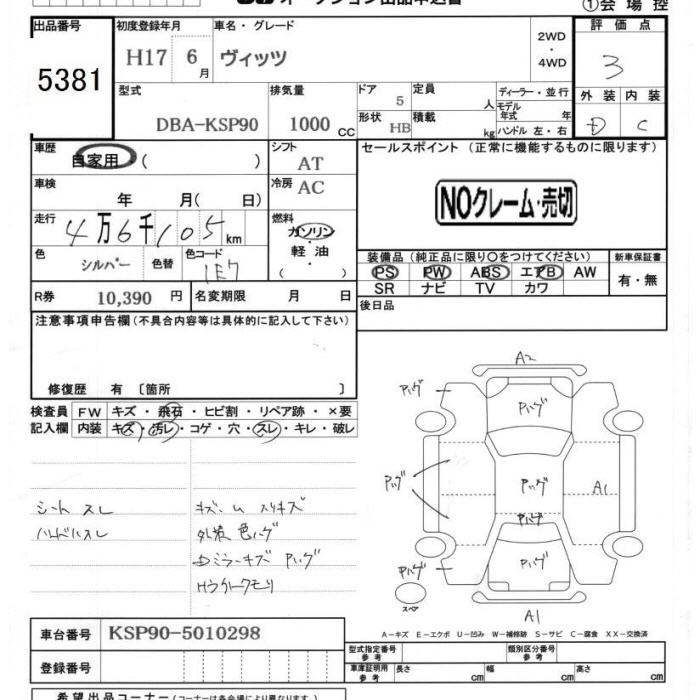 オークション出品申込書
①会場控
出品番号
5381
初度登録年月
H17 6月
車名・グレード
ヴィッツ
2WD
・
4WD
評価点
3
型式
DBA-KSP90
排気量
1000 CC
ドア
5
定員
人
形状
HB
積載
kg
ディーラー・並行
モデル
年式 年
ハンドル 左・右
外装 内装
D C
車歴
自家用 ( )
シフト
AT
セールスポイント (正常に機能するものに限ります)
車検
年 月( 日)
冷房
AC
NOクレーム・売切
走行
4万6千105km
燃料
ガソリン
軽油
( )
色
シルバー
色替
色コード
1E7
装備品 (純正品に限り〇をつけてください)
新車保証書
PS PW ABS エアB AW
SR ナビ TV カワ
有・無
R券 10,390 円
名変期限 月 日
後日品
注意事項申告欄 (不具合内容等は具体的に記入して下さい)
修復歴 有 〔箇所 〕
検査員
記入欄
FW キズ・飛石・ヒビ割・リペア跡・×要
内装 キズ・汚レ・コゲ・穴・スレ・キレ・破レ
シートスレ
ハンドルスレ
外装色ハゲ
ミラーキズ Pハゲ
A2
Pハゲ
Pハゲ
Pハゲ
Pハゲ
A1
Pハゲ
Pハゲ
Pハゲ
スペア
A1
A-キズ E-エクボ U-凹み W-補修跡 S-サビ C-腐食 XX-交換済
車台番号 KSP90-5010298
登録番号
型式指定番号
参考
類別区分番号
参考
車庫証明用
参考
長さ cm 幅 cm 高さ cm
希望出品コーナー (コーナーは各会場により異なります。)